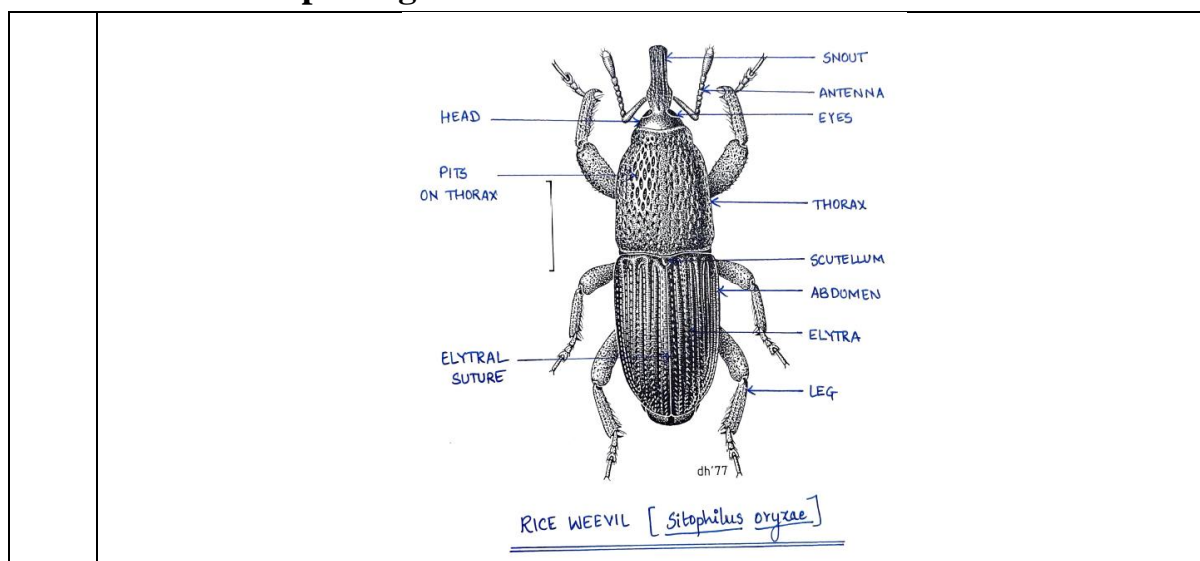 SNOUT
ANTENNA
HEAD
EYES
PITS
ON THORAX
THORAX
SCUTELLUM
ABDOMEN
ELYTRA
ELYTRAL
SUTURE
LEG
dh'77
RICE WEEVIL [Sitophilus oryzae]